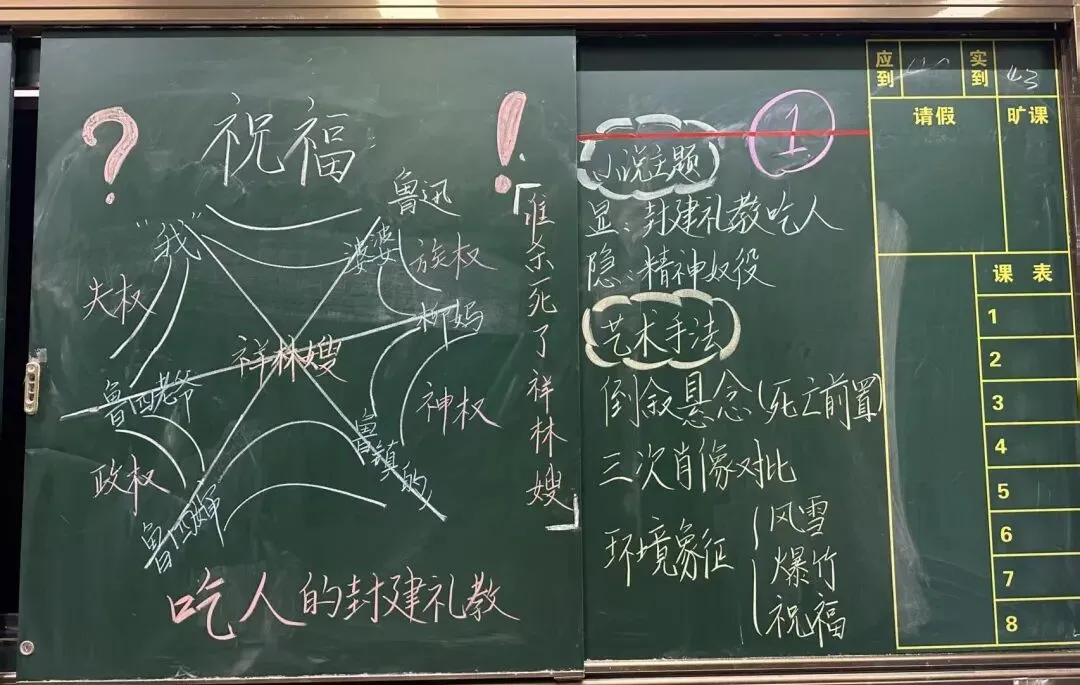 ? 祝福 !
鲁迅
“我”
婆婆
族权
夫权
柳妈
祥林嫂
鲁四老爷
神权
鲁镇的
政权
鲁四婶
吃人的封建礼教
「谁杀死了祥林嫂」
1
小说主题
显:封建礼教吃人
隐:精神奴役
艺术手法
倒叙悬念(死亡前置)
三次肖像对比
环境象征
风雪
爆竹
祝福
应到
实到 43
请假
旷课
课表
1
2
3
4
5
6
7
8